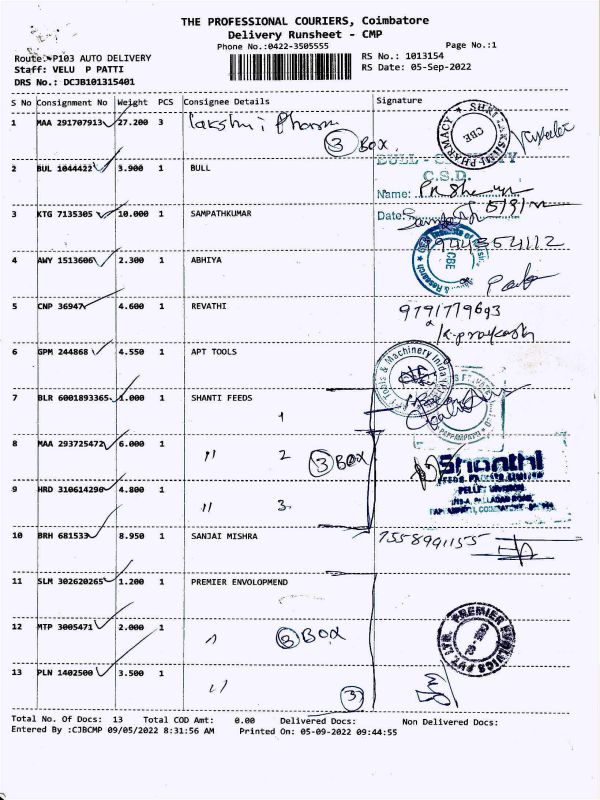 THE PROFESSIONAL COURIERS, Coimbatore
Delivery Runsheet - CMP
Phone No.:0422-3505555 Page No.:1
Route:-P103 AUTO DELIVERY RS No.: 1013154
Staff: VELU P PATTI RS Date: 05-Sep-2022
DRS No.: DCJB101315401
S No Consignment No Weight PCS Consignee Details Signature
1 MAA 291707913 27.200 3 Lakshmi Pharm
3 BOX
SHRI LAKSHMI PHARMACY CBE
2 BUL 1044422 3.900 1 BULL
C.S.D.
Name:
Date:
3 KTG 7135305 10.000 1 SAMPATHKUMAR
9944354112
4 AWY 1513606 2.300 1 ABHIYA
& Research CBE
5 CNP 36947 4.600 1 REVATHI
9791779693
K-prakash
6 GPM 244868 4.550 1 APT TOOLS
Tools & Machinery
7 BLR 6001893365 1.000 1 SHANTI FEEDS
1
8 MAA 293725472 6.000 1 " 2 3 BOX
Shanthi
FEEDS PRIVATE LIMITED
PELLET DIVISION
9 HRD 310614296 4.800 1 " 3
10 BRH 681533 8.950 1 SANJAI MISHRA
7558991155
11 SLM 302620265 1.200 1 PREMIER ENVOLOPMEND
12 MTP 3005471 2.000 1 " 3 BOX
PREMIER EVOLVICS PVT. LTD.
13 PLN 1402500 3.500 1 "
3
Total No. Of Docs: 13 Total COD Amt: 0.00 Delivered Docs: Non Delivered Docs:
Entered By :CJBCMP 09/05/2022 8:31:56 AM Printed On: 05-09-2022 09:44:55